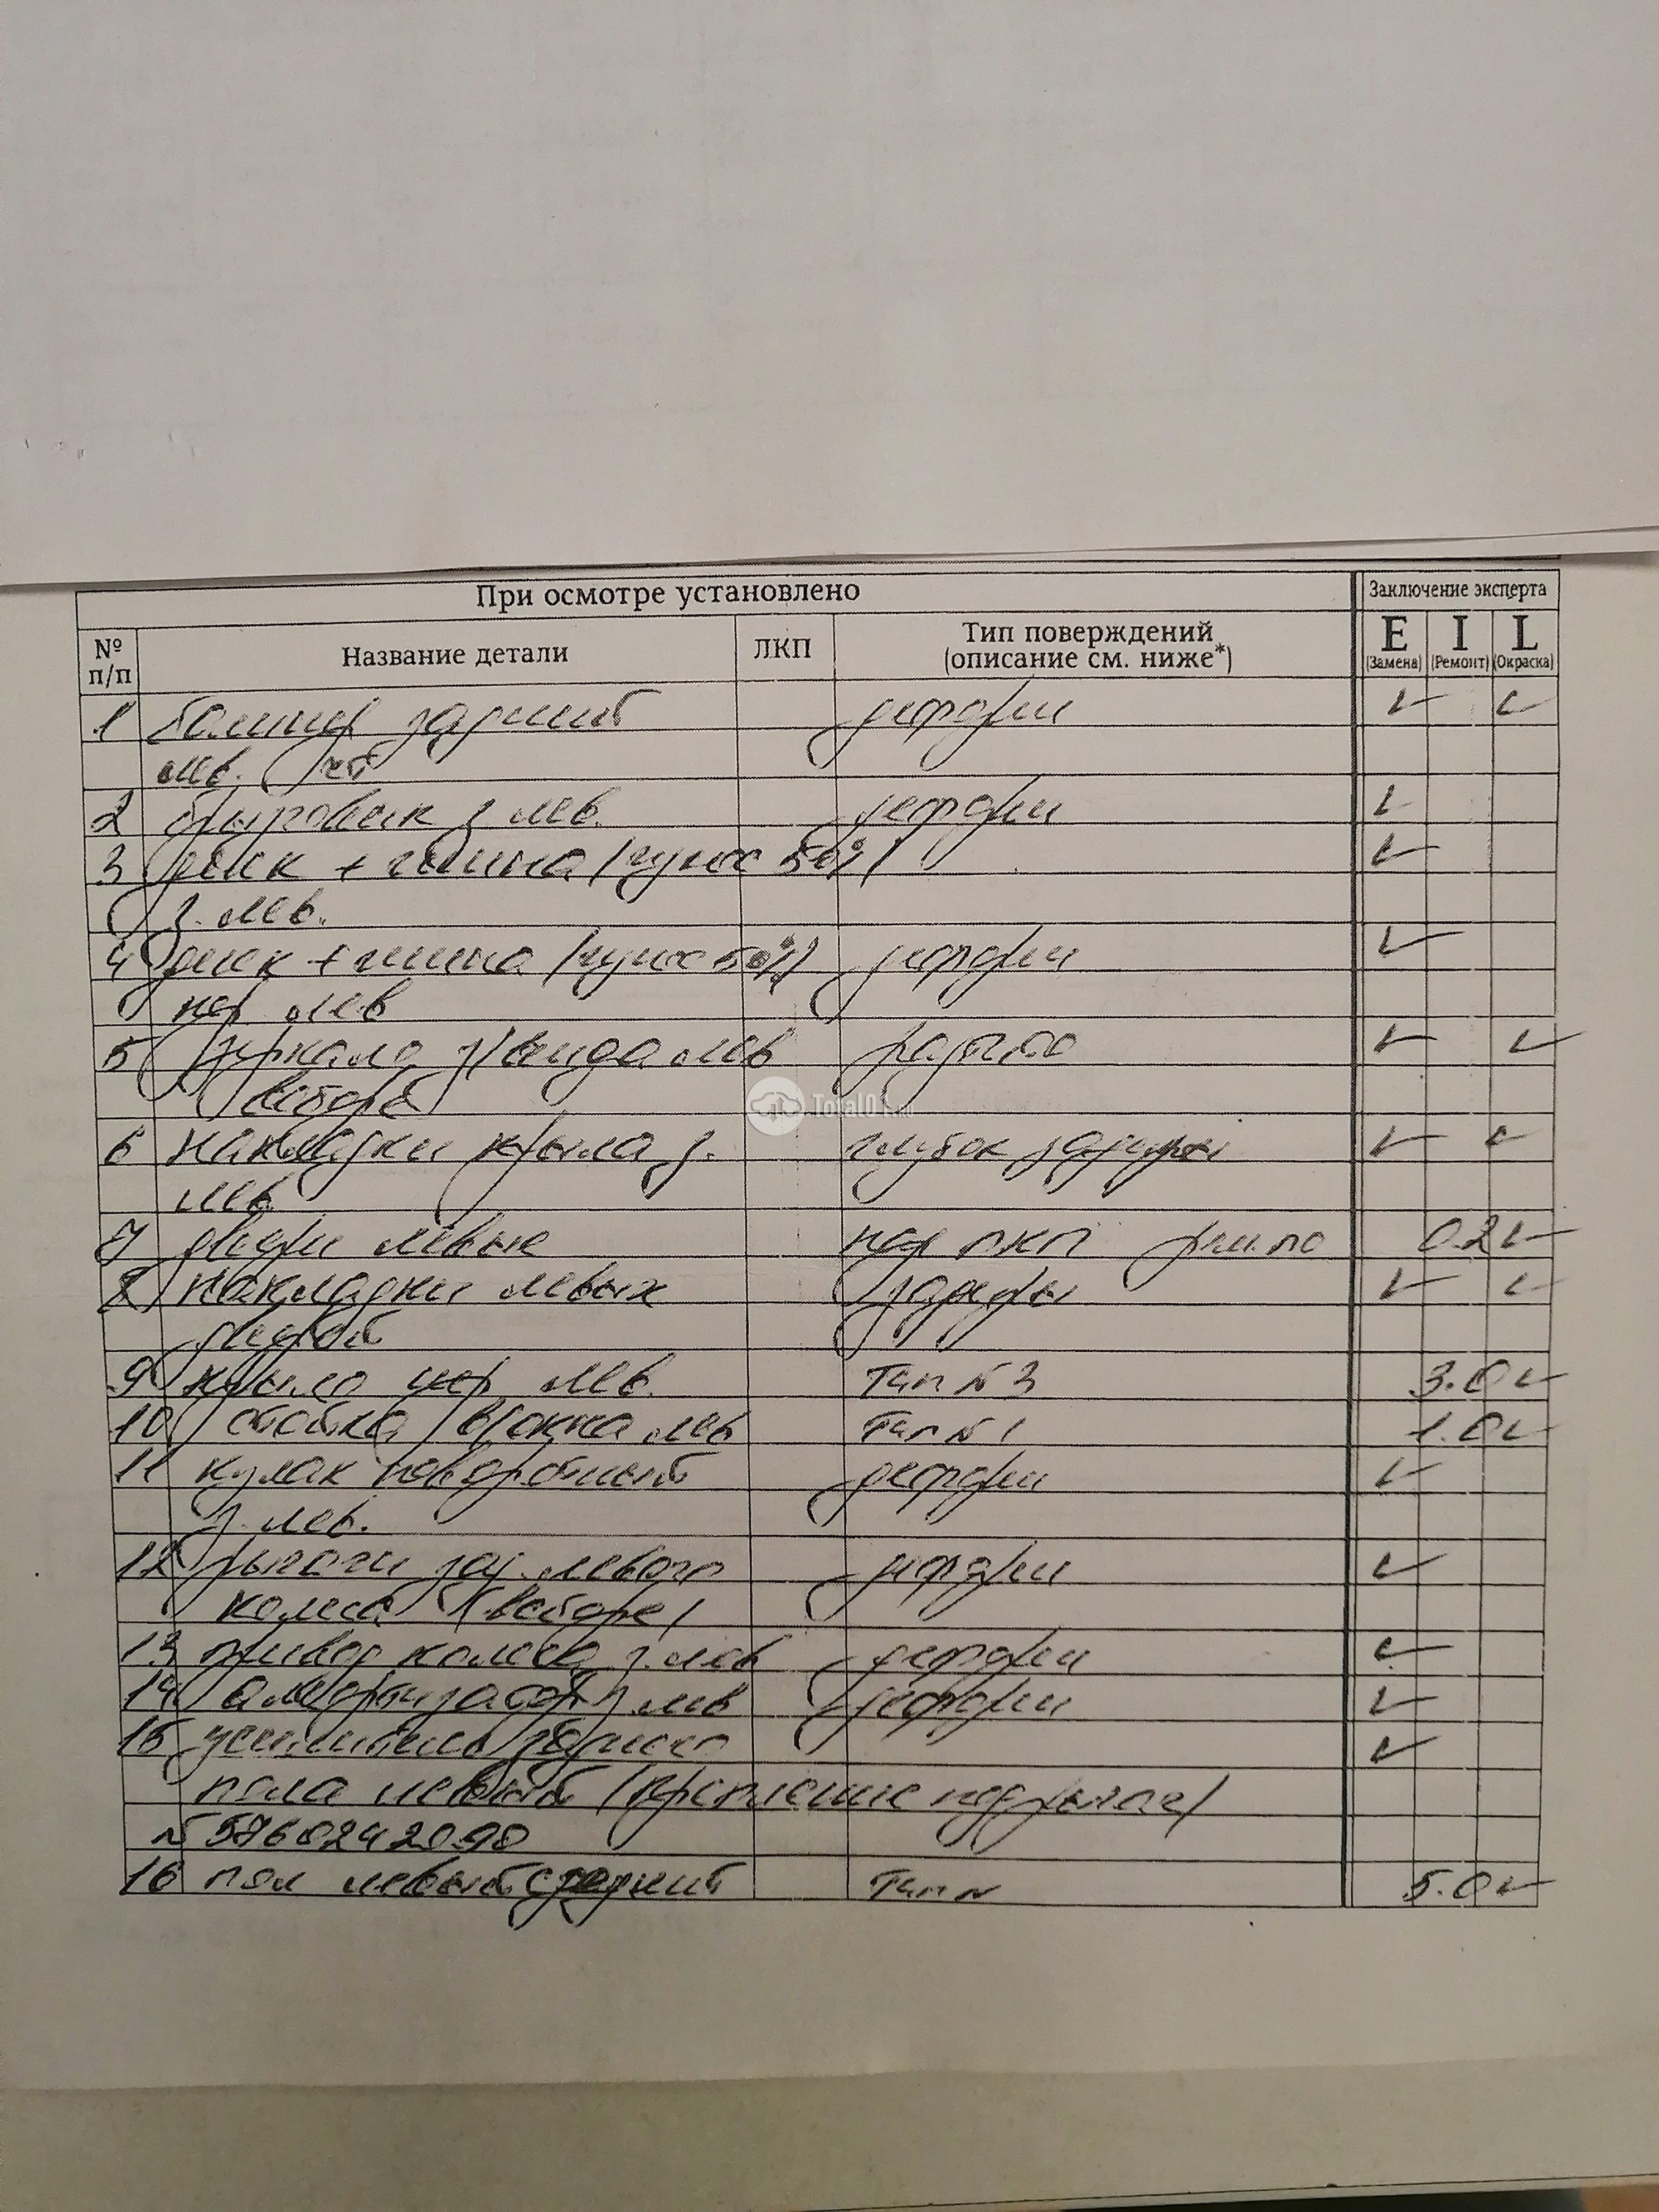 При осмотре установлено Заключение эксперта
№ п/п Название детали ЛКП Тип поверждений (описание см. ниже*) E (Замена) I (Ремонт) L (Окраска)
1 бампер задний деформ ✓ ✓
лев.
2 брызговик з лев. деформ ✓
3 диск + шина (износ 50%) ✓
з. лев.
4 диск + шина (износ 50%) деформ ✓
пер лев
5 зеркало з/вида лев ✓ ✓
в сборе
6 накладки крыла з. глубок задиры ✓ ✓
лев
7 двери левые ЛКП 0.2 ✓
8 накладки левых задиры ✓ ✓
дверей
9 крыло пер лев. Тип №3 3.0 ✓
10 стойка лев Тип №1 1.0 ✓
11 кулак поворотный деформ ✓
з. лев.
12 рычаги зад. левого деформ ✓
колеса (в сборе)
13 привод колеса з. лев деформ ✓
14 амортизатор з лев деформ ✓
15 усилитель заднего ✓
пола левый (крепление под рычаг)
№ 5760242090
16 пол левый средний Тип № 5.0 ✓
Total01.ru